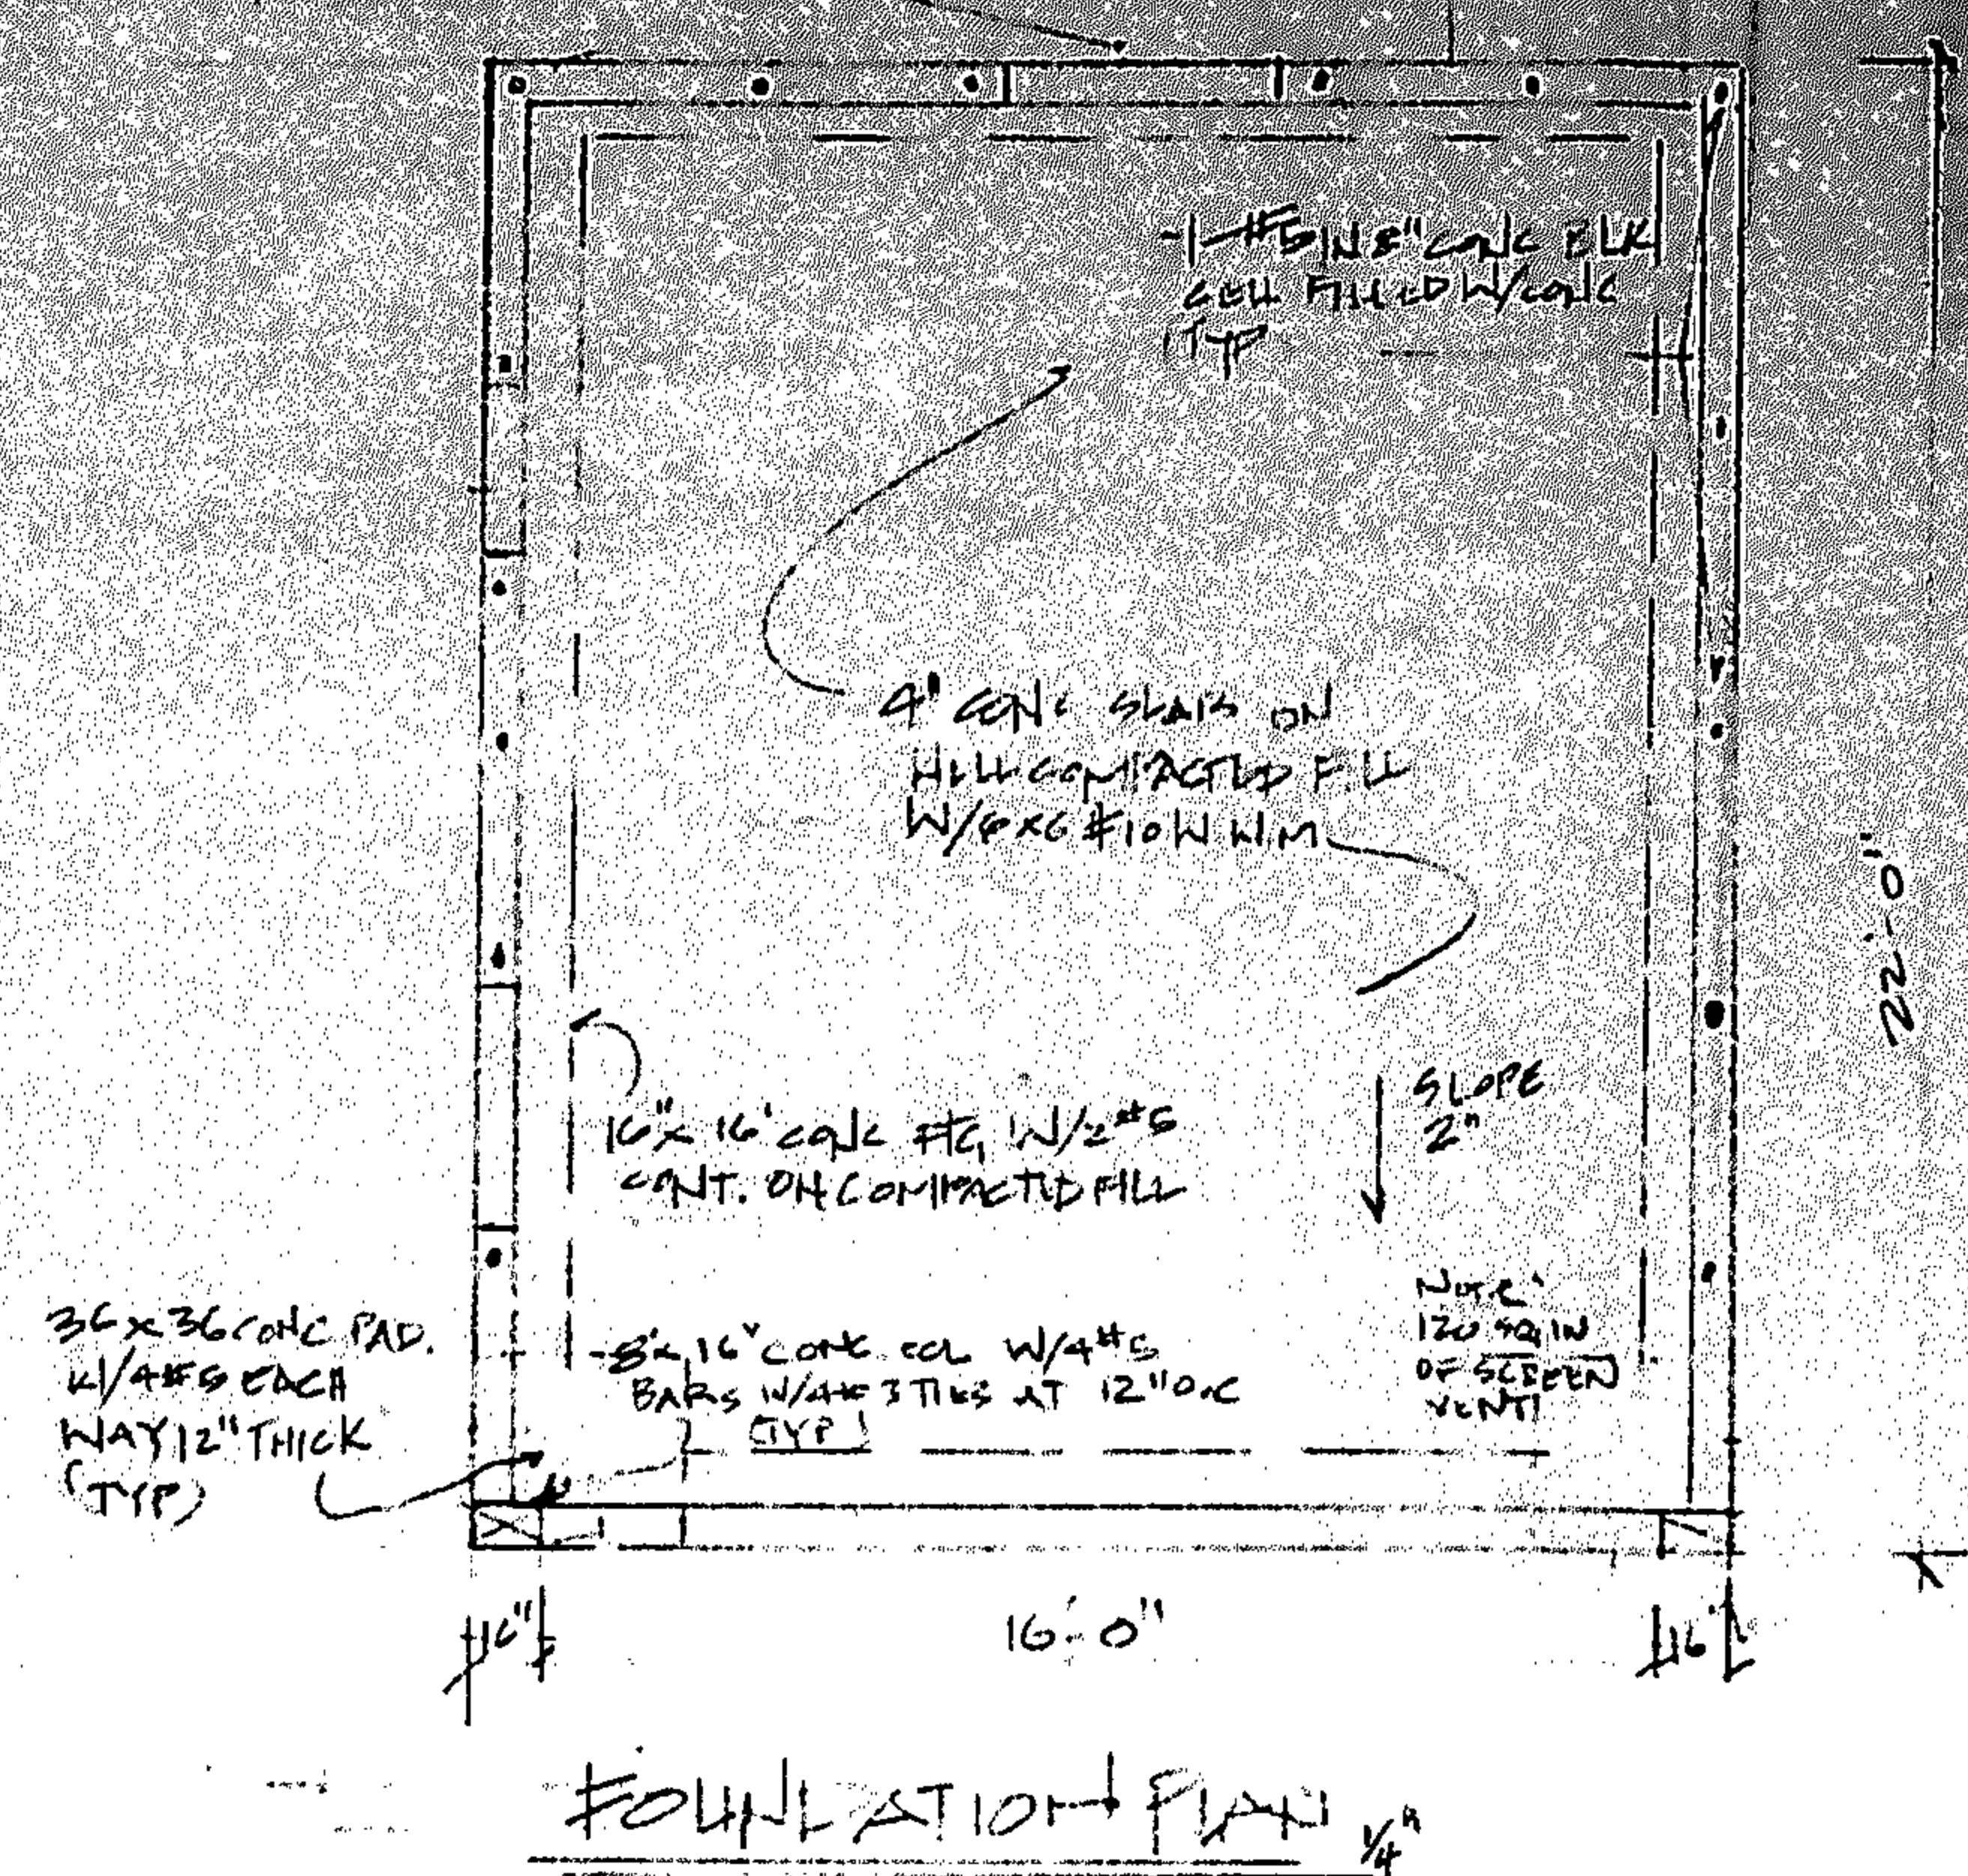 -1-#5 IN 8" CONC BLK
CELL FILLED W/CONC
TYP
4" CONC SLAB ON
WELL COMPACTED FILL
W/6X6 #10 W.W.M
22'-0"
16"x 16" CONC FTG W/2#5
CONT. ON COMPACTED FILL
SLOPE
2"
NOTE:
120 SQ IN
OF SCREEN
VENT
36 x 36 CONC PAD.
W/4#5 EACH
WAY 12" THICK
(TYP)
8"x 16" CONC COL W/4#5
BARS W/#3 TIES AT 12" O.C
(TYP)
16"
16'-0"
16"
FOUNDATION PLAN 1/4"